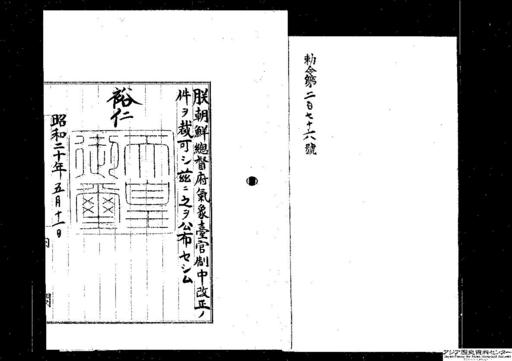 勅令第二百七十六號
朕朝鮮總督府氣象臺官制中改正ノ
件ヲ裁可シ茲ニ之ヲ公布セシム
裕仁
天皇
御璽
昭和二十年五月十一日
内閣
アジア歴史資料センター